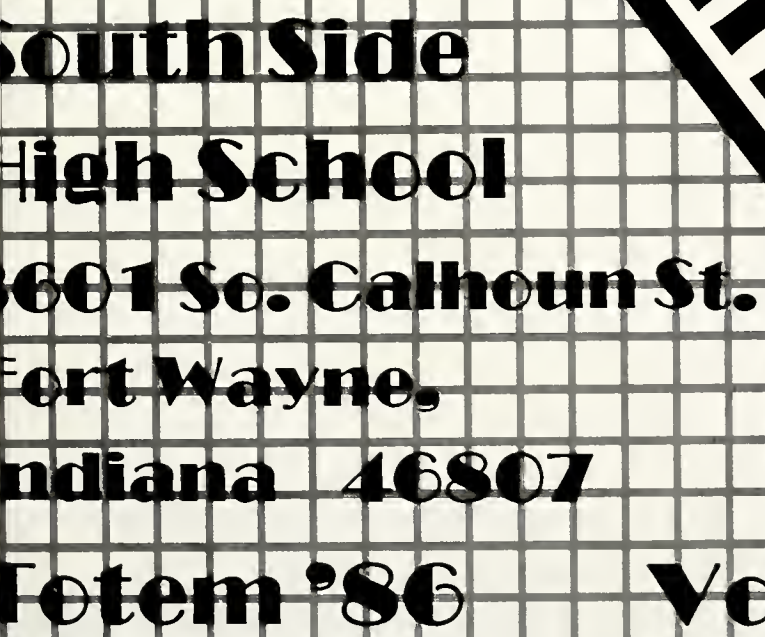 South Side
High School
3601 So. Calhoun St.
Fort Wayne,
Indiana 46807
Totem '86